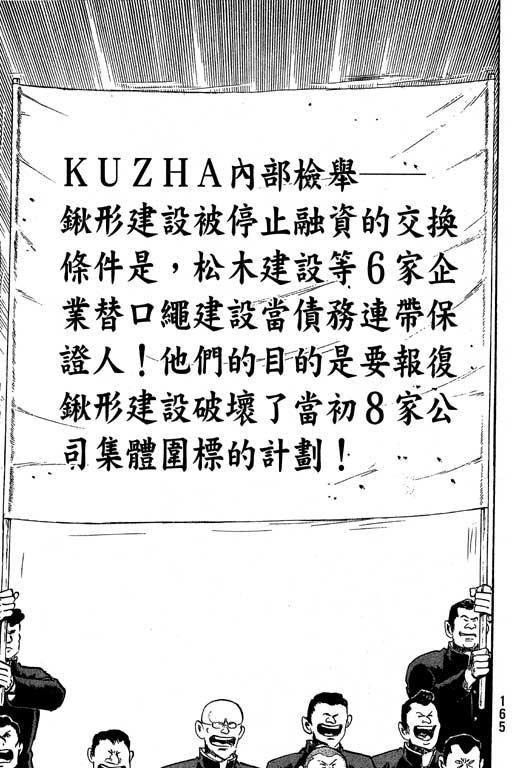 KUZHA內部檢舉——
鍬形建設被停止融資的交換
條件是，松木建設等6家企
業替口繩建設當債務連帶保
證人！他們的目的是要報復
鍬形建設破壞了當初8家公
司集體圍標的計劃！
165